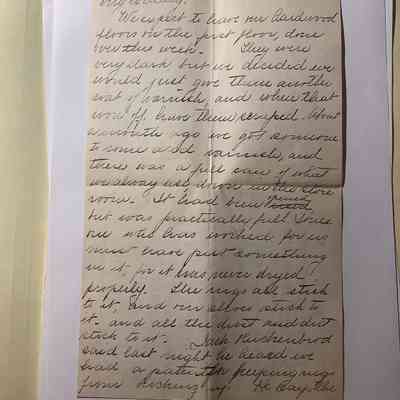 We expect to have our hardwood
floors on the first floor, done
over this week. They were
very dark but we decided we
would just give them another
coat of varnish, and when that
wore off have them scraped. About
a month ago we got someone
to come and varnish, and
there was a full can of what
we always use down in the store
room. It had been
but was practically full. Some
one who has worked for us
must have put something
in it, for it has never dryed
properly. The rugs all stick
to it, and our shoes stick to
it. and all the dust and dirt
stick to it. Jack
said last night he heard we
had a patent for keeping rugs
from He says the